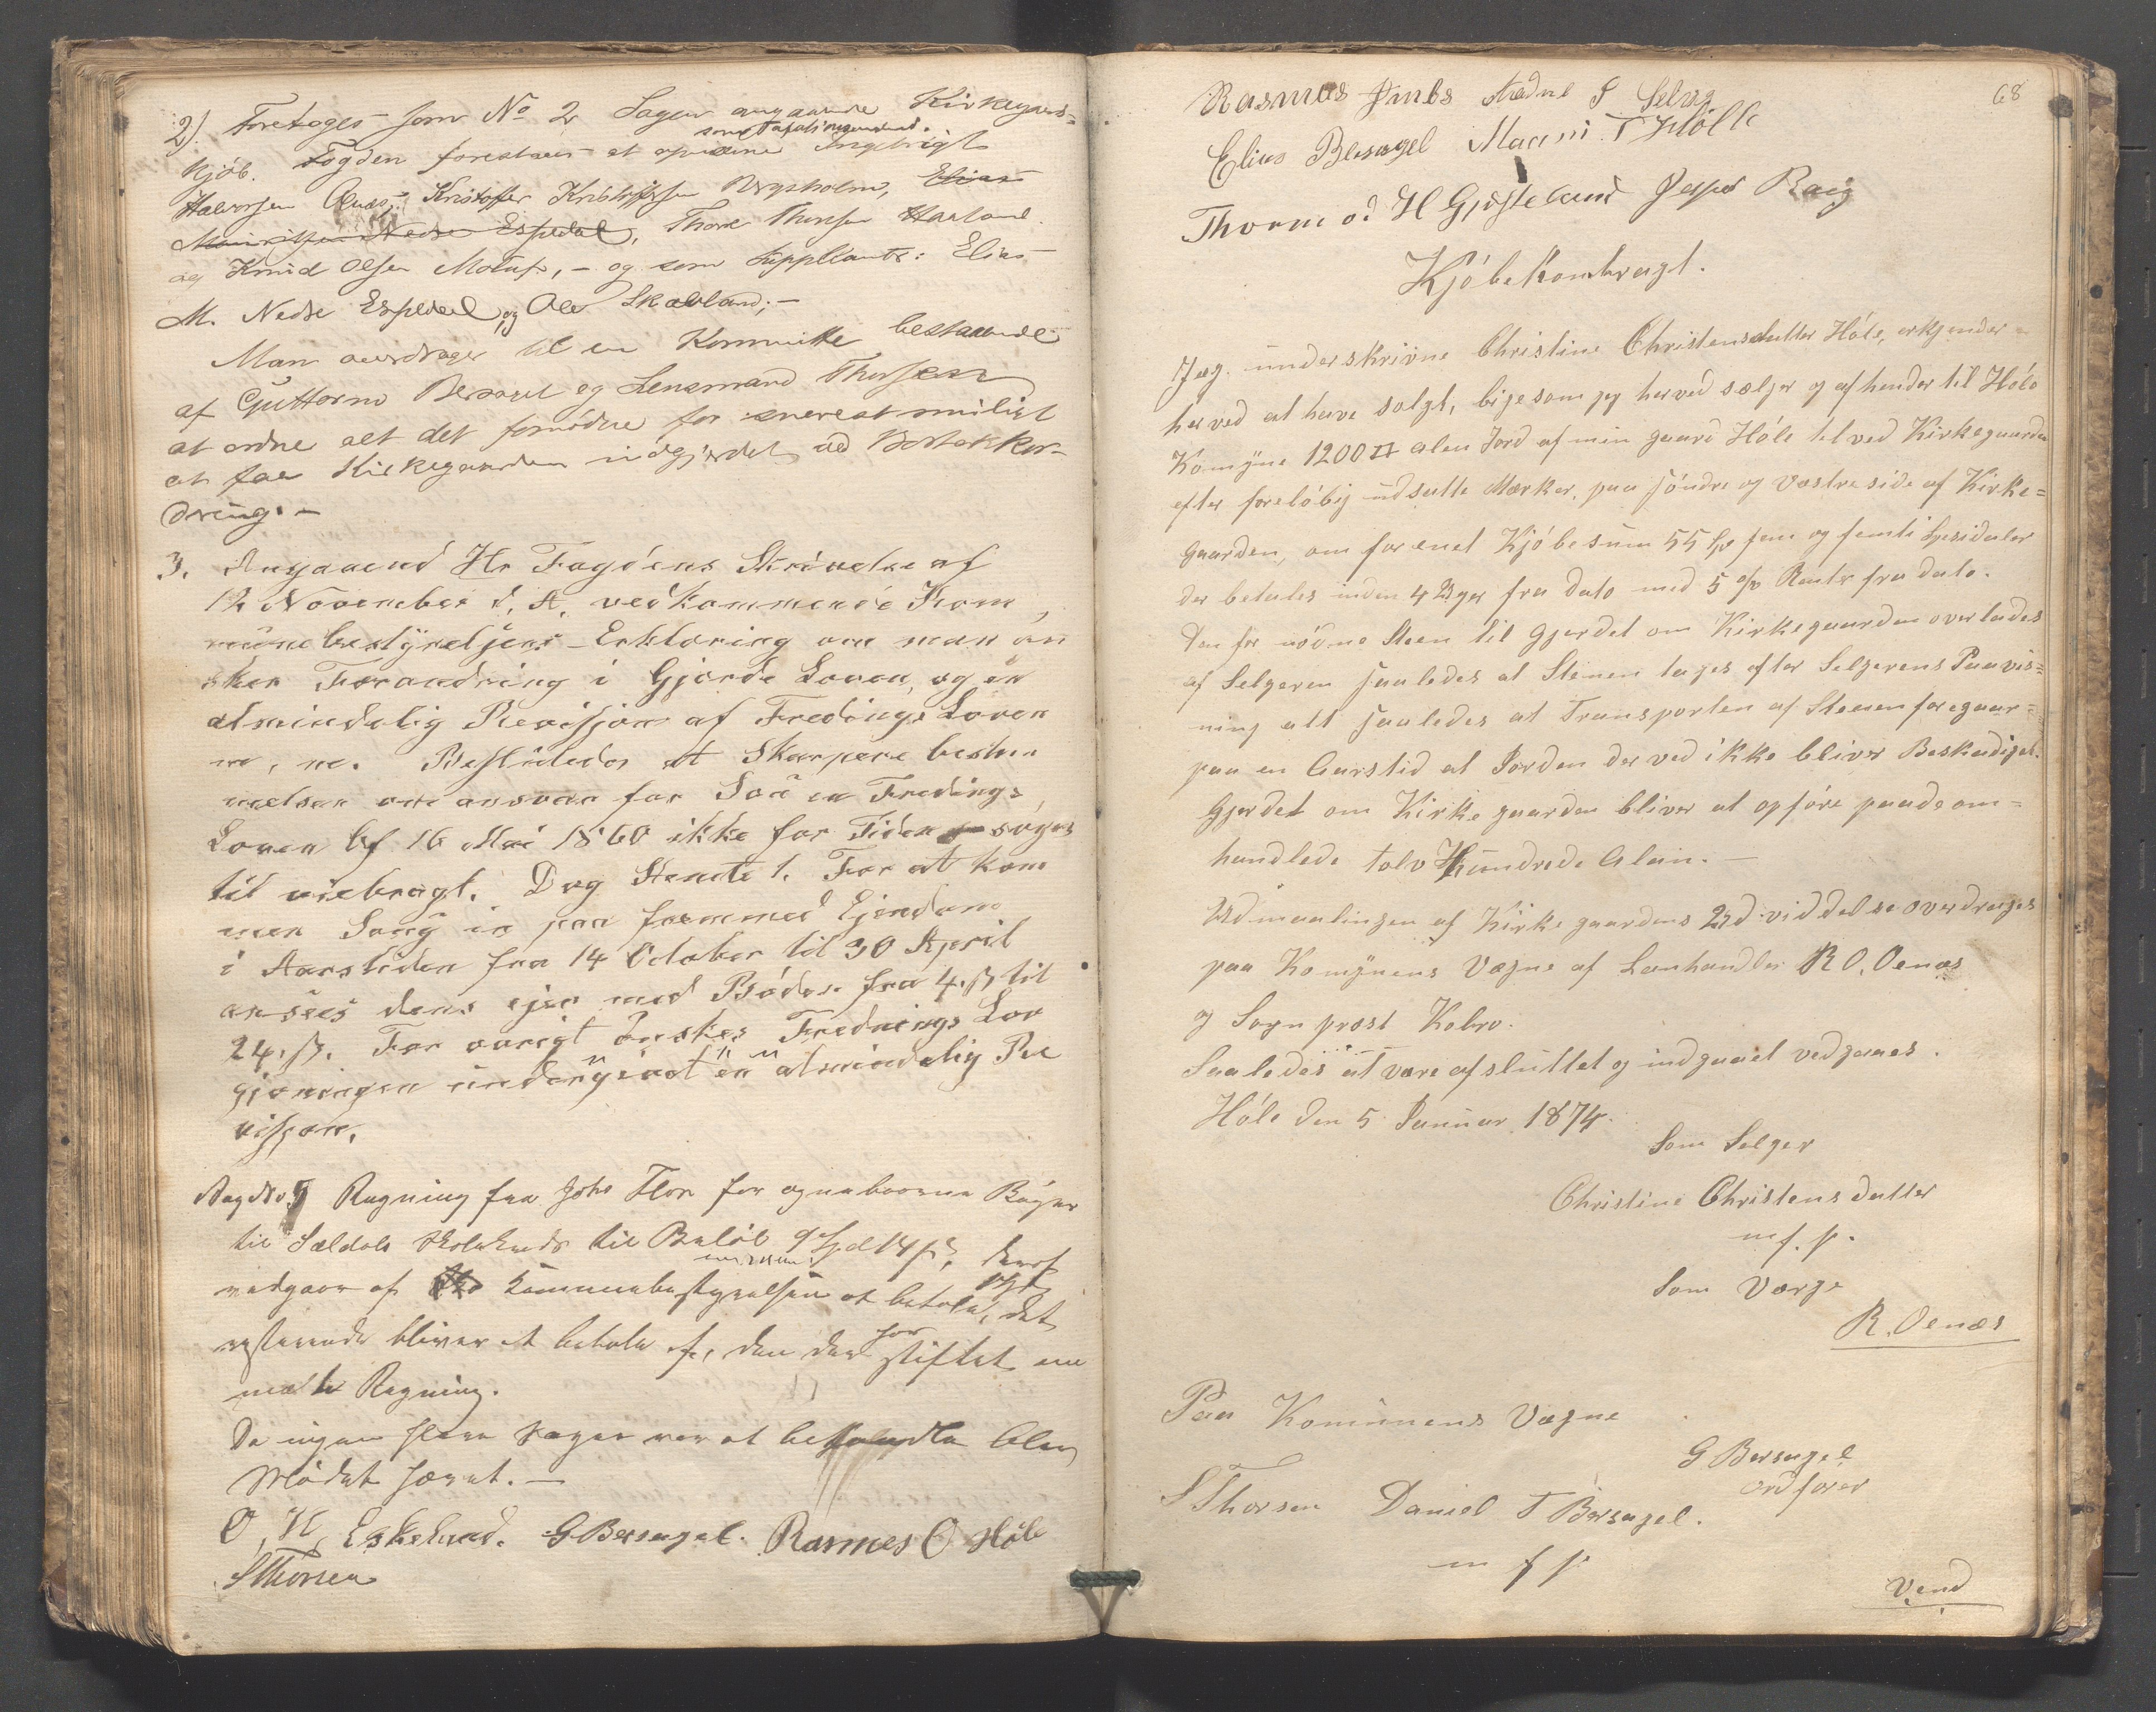 2). Foretoges som No 2 Sagen angaaende Kirkegaards-
kjöb. Fogden forestaaes at opnævne Ingebrigt
som Taxatsmænd.
Halvorsen Oenæs, Kristoffer Kristoffersen Bergsholm, Elias
Mauritsen Nedre Espedal, Thore Thorsen Haaland
og Knud Olsen Molaug, - og som Suppleants: Elias
M. Nedre Espedal og Ole Skavland; -
Man overdrager til en Kommitte bestaaende
af Guttorm Bersagel og Lensmand Thorsen
at ordne alt det fornödne for snarest muligt
at faae Kirkegaarden indgjerdet ved Bortakkor-
dring. -
3. Angaaend Hr Fogdens Skrivelse af
12 November d. A. vedkommende Kom
munebestyrelsens Erklæring om man ön
sker Forandring i Gjerde Loven, og en
almindelig Revisjon af Frednings Loven
m, m. Besluttedes at Skarpere bestem
melser om ansvar for Sou en Frednings
Loven af 16 Mai 1860 ikke for Tiden söges
til veiebragt. Dog Stemte 1. For at kom
mer Soug in paa fremmed Ejendom
i Aarstiden fra 14 October til 30 April
ansees dens ejer med Böder fra 4 ß til
24 ß. For övrigt önskes Frednings Lov
givningen undergivet en almindelig Re
visjon.
Regning fra Johs Floor for Böger
til Sældals Skolekreds til Belöb 9 Spd 14 ß, heraf
vedgaar af Kommunebestyrelsen at betale, det
resterende bliver at betale af, den der har stiftet om
meldte Regning.
Da ingen flere Sager var at behandle blev
Mödet hævet. -
O. H. Eskeland. G Bersagel. Rasmus O Høle
S Thorsen
68
Rasmus Selvig
Elias Bersagel T Hölle
Thormod H Gjöstelund
Kjöbekontragt.
Jeg underskrivne Christine Christensdatter Höle, erkjender
herved at have solgt, ligesom jeg herved sælger og afhender til Höle
Komyne 1200 □ alen Jord af min gaard Höle til ved Kirkegaarden
efter forelöbig udsatte Mærker, paa söndre og Vestre side af Kirke=
gaarden, om forenet Kjöbesum 55 Sp fem og femti Spesidaler
der betales inden 4 Uger fra dato med 5 o/o Rente fra dato.
Den for nödne Steen til Gjerdet om Kirkegaarden overlades
af Selgeren saaledes at Stenen tages efter Selgerens Paavis=
ning alt saaledes at Transporten af Stenen foregaar
paa en Aarstid at Jorden der ved ikke bliver Beskadiget.
Gjerdet om Kirkegaarden bliver at opföre paa de om=
handlede tolv Hundrede Alen. -
Udmaalingen af Kirkegaardens Udviddelse overdrages
paa Komynens Vægne af Lanhandler R O. Oenæs
og Sogneprost Kobro.
Saaledes at være afsluttet og indgaaet vedgaaes.
Höle den 5 Januar 1874.
Som Selger
Christine Christensdatter
m. f. p.
Som Værge
R. Oenæs
Paa Komunens Vægne
G Bersagel
ordförer
S Thorsen Daniel T Bersagel.
m f p
Vend